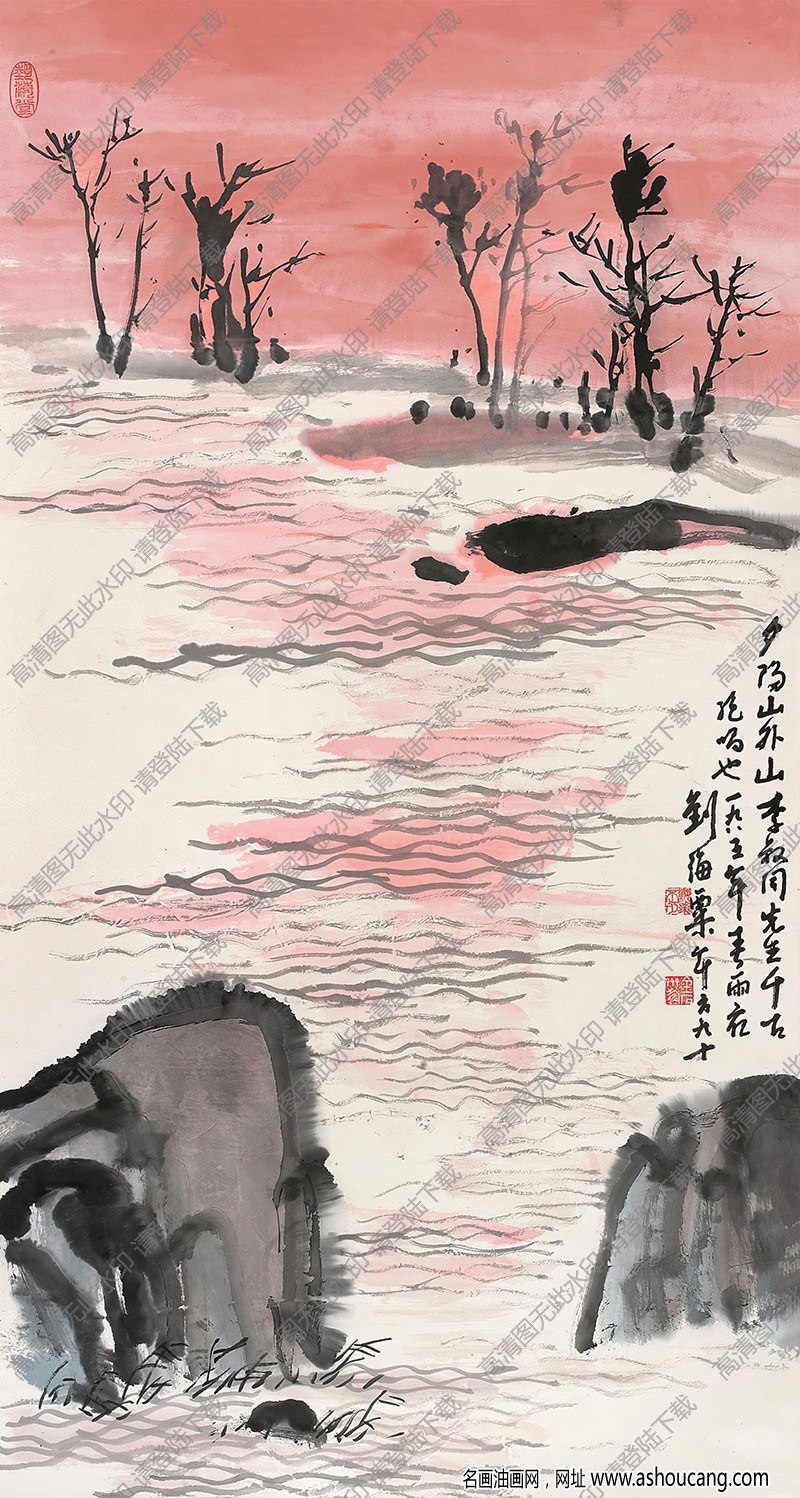 夕阳山外山李叔同先生千古
绝唱也一九八五年春雨夜
刘海粟年方九十
高清图无此水印 请登陆下载
名画油画网，网址 www.ashoucang.com